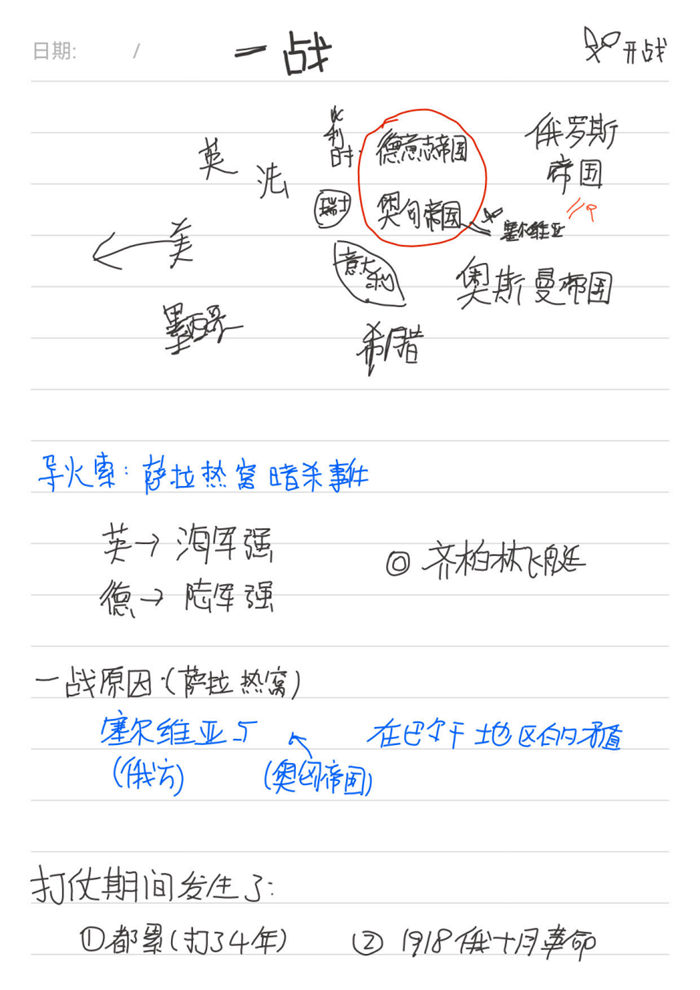 日期: /
一战
开战
比利时
德意志帝国
俄罗斯
帝国
英
法
瑞士
奥匈帝国
塞尔维亚
美
意大利
奥斯曼帝国
墨西哥
希腊
导火索: 萨拉热窝暗杀事件
英→海军强
◎ 齐柏林飞艇
德→陆军强
一战原因·(萨拉热窝)
塞尔维亚与 在巴尔干地区的矛盾
(俄方) (奥匈帝国)
打仗期间发生了:
①都累(打了4年) ② 1918俄十月革命